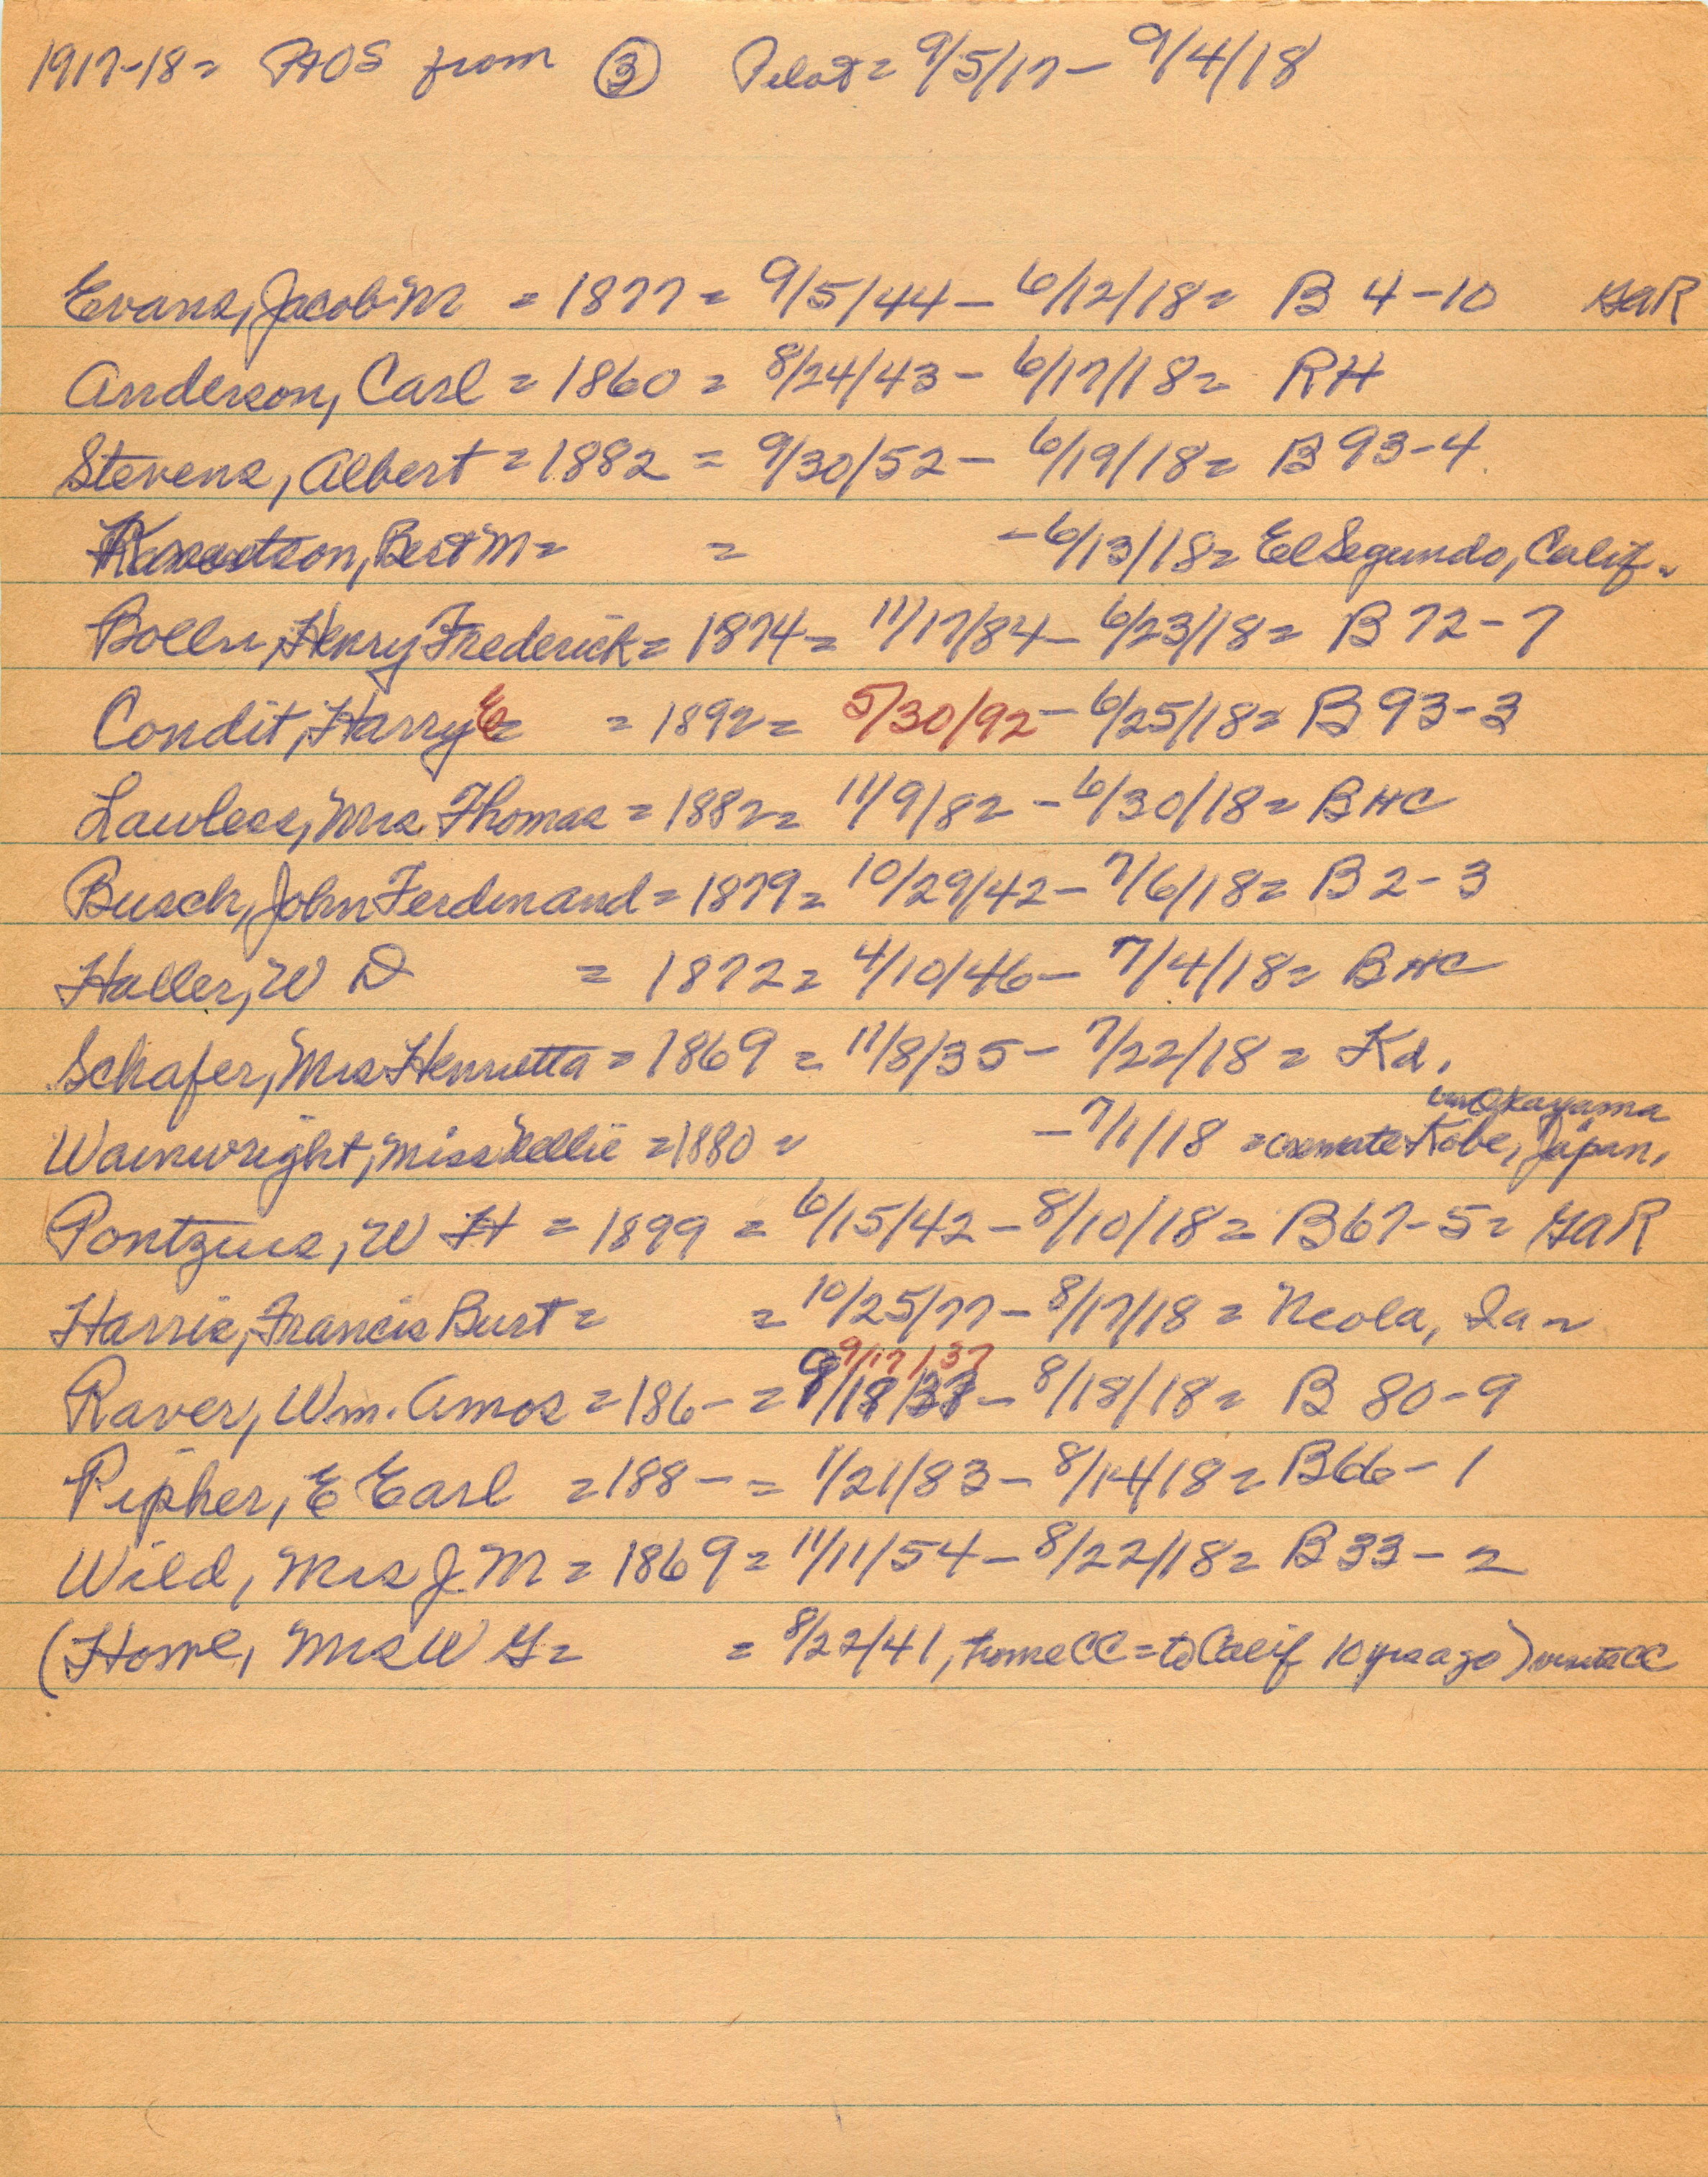 1917-18= HOS from ③ Pilot= 9/5/17- 9/4/18
Evans, Jacob M = 1877 = 9/5/44- 6/12/18= B 4-10 GAR
Anderson, Carl = 1860 = 8/24/43- 6/17/18= RH
Stevens, Albert = 1882 = 9/30/52- 6/19/18= B 93-4
Bert M= = -6/13/18= El Segundo, Calif.
Bolln, Henry Frederick= 1874= 11/17/84- 6/23/18= B 72-7
Condit, Harry E = 1892= 5/30/92- 6/25/18= B 93-3
Lawless, Mrs. Thomas = 1882= 11/9/82 - 6/30/18= BHC
Busch, John Ferdinand= 1879= 10/29/42- 7/6/18= B 2-3
Haller, W D = 1872= 4/10/46- 7/4/18= BHC
Schafer, Mrs Henrietta= 1869 = 11/8/35- 7/22/18= Kd.
in Okayama
Wainwright, Miss Nellie =1880= -7/1/18 = Kobe, Japan,
Pontzius, W H = 1899 = 6/15/42-8/10/18= B67-5= GAR
Harris, Francis Burt= = 10/25/77- 8/17/18= Neola, Ia=
9/17/37
Raver, Wm. Amos=186-= - 8/18/18= B 80-9
Pipher, E Earl =188-= 1/21/83- 8/14/18= B66-1
Wild, Mrs J.M= 1869= 11/11/54- 8/22/18= B 33-2
Mrs W G= = 8/22/41, home CC=to Calif 10 yrs ago) visits CC